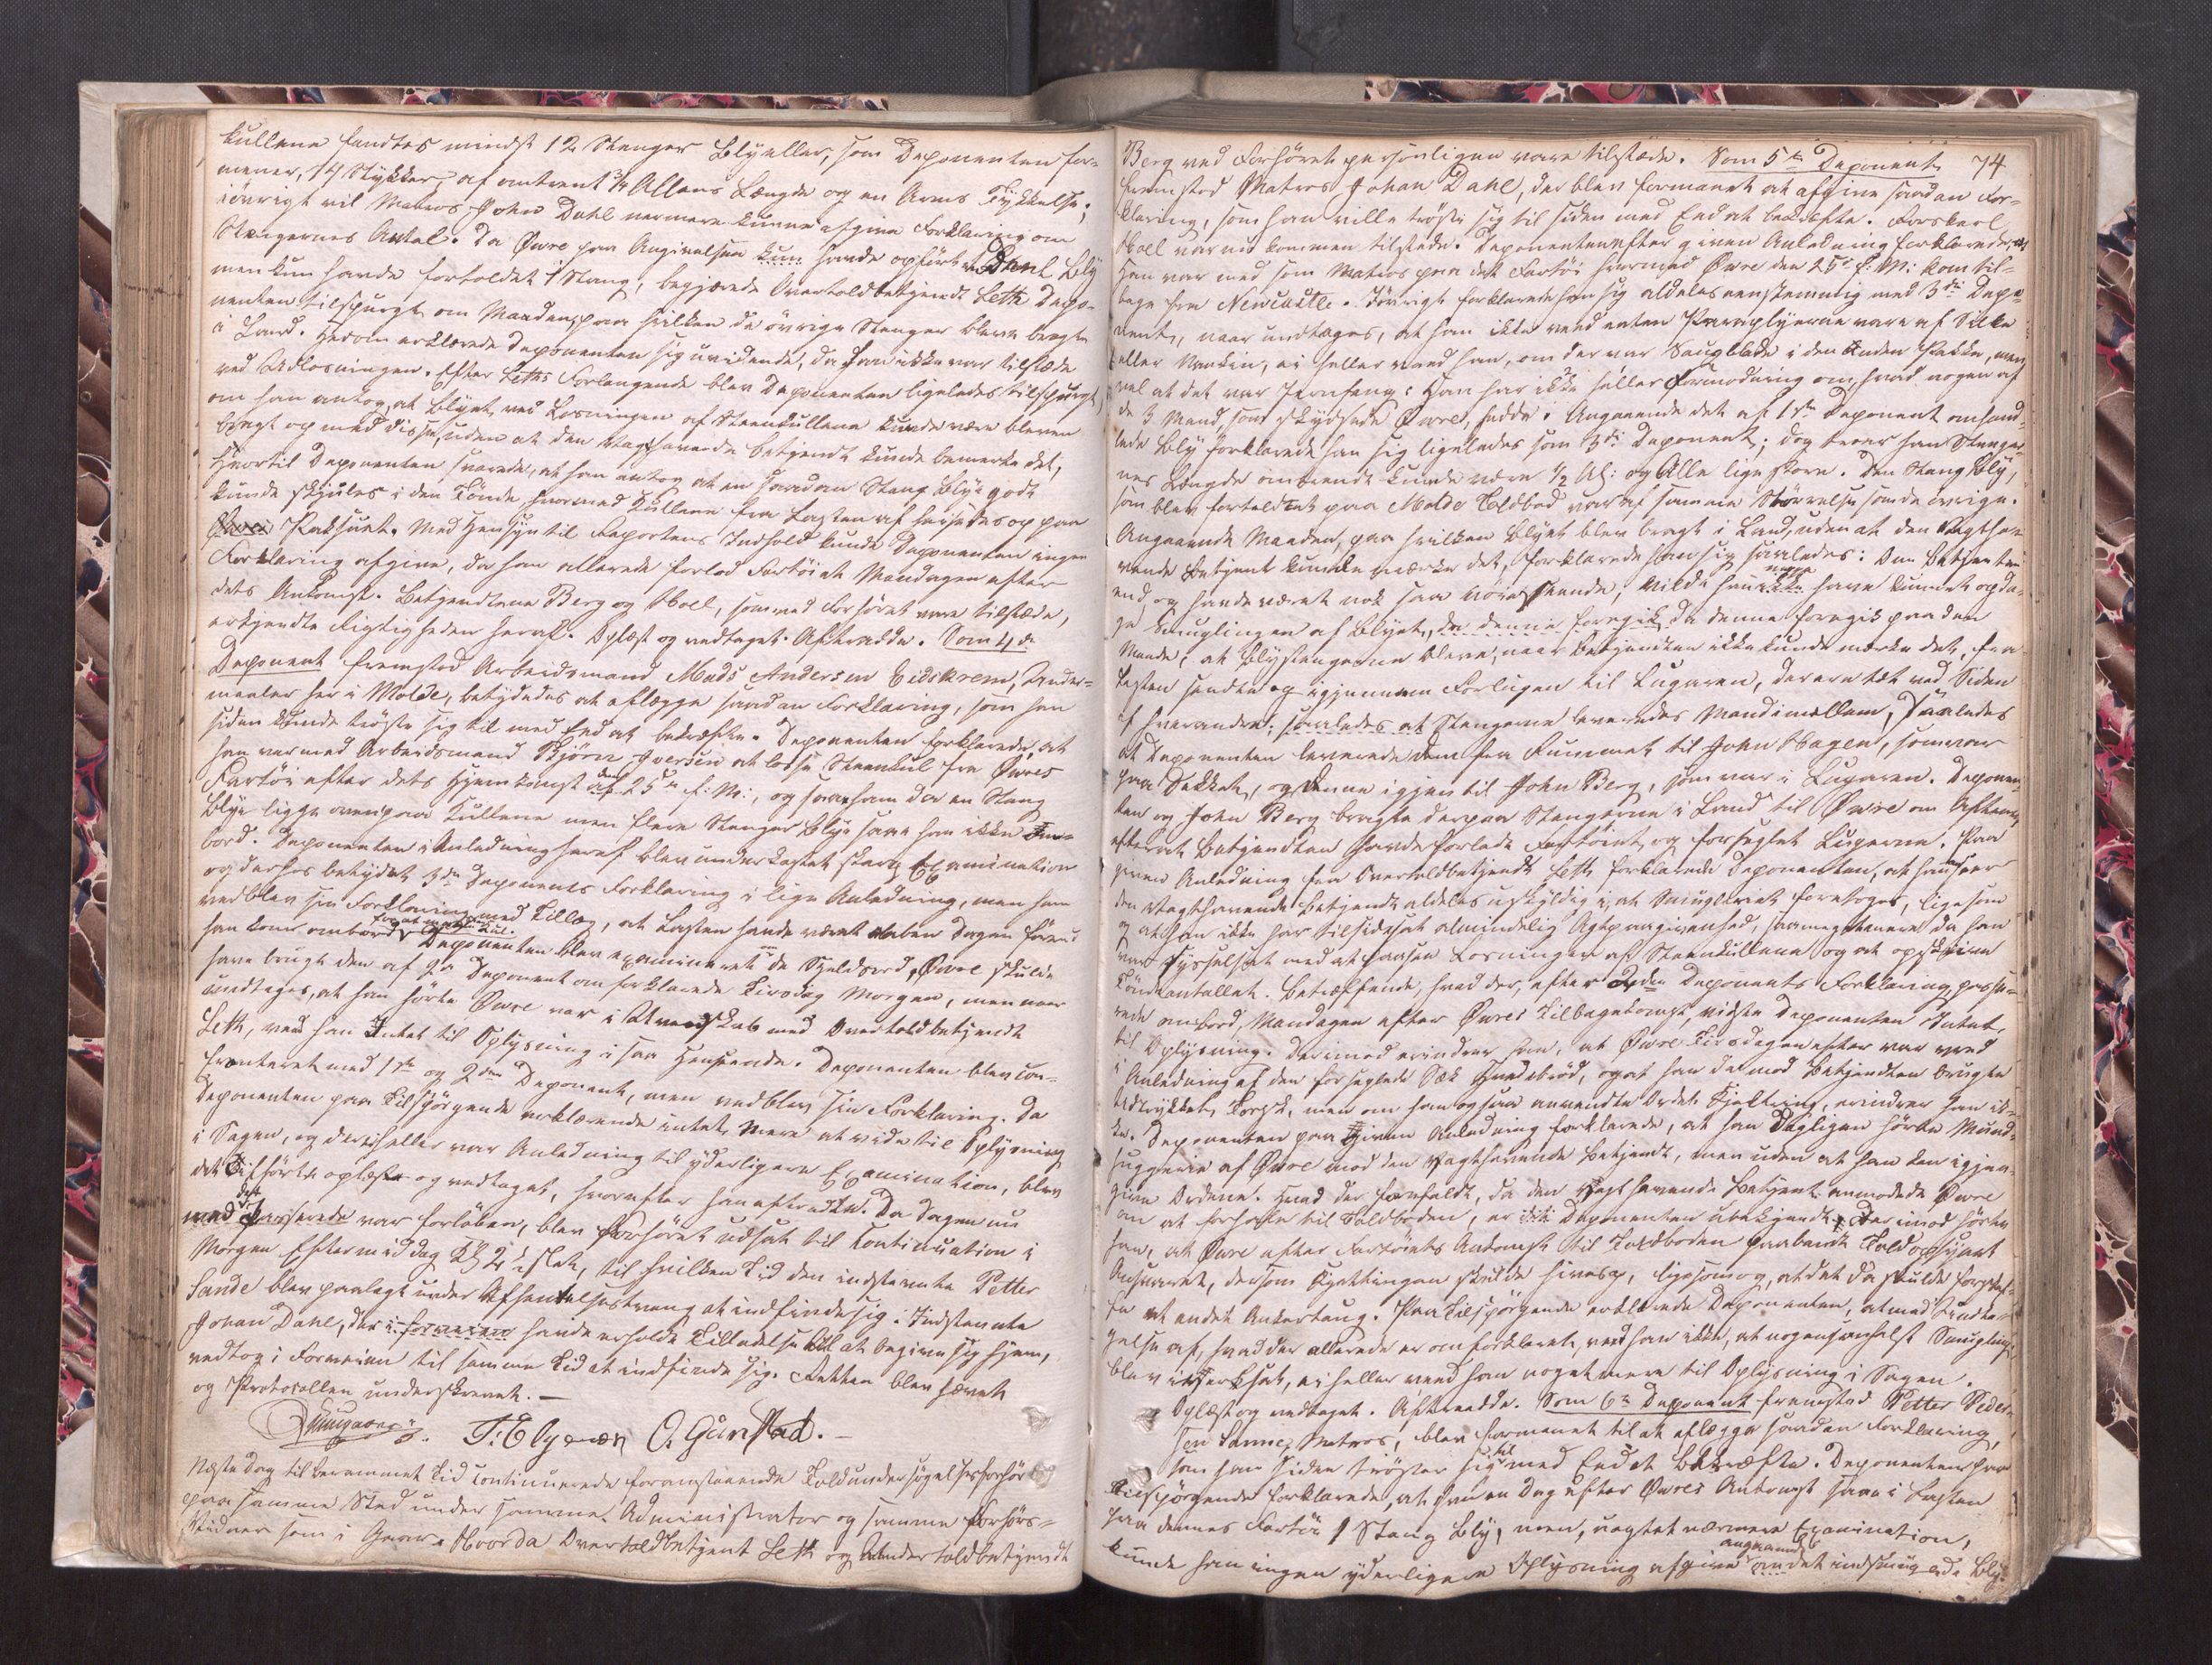 kullene fandtes mindst 12 Stænger Bly eller, som Deponenten for-
mener, 14 Stykker, af omtrent 3/4 Allens Længde og en Arms Tykkelse;
iøvrigt vil Matros Johan Dahl nærmere kunne afgive Forklaring om
Stængernes Antal. Da Øwre paa Angivelsen kun havde opført Bly
men kun havde fortoldet 1 Stang, begjærede Overtoldbetjendt Leth Depo-
nenten tilspurgt om Maaden, paa hvilken de øvrige Stænger bleve bragte
i Land. Herom erklærede Deponenten sig uvidende, da han ikke var tilstæde
ved Udlosningen. Efter Leths Forlangende blev Deponenten ligeledes tilspurgt,
om han antog, at Blyet ved Losningen af Steenkullene kunde være bleven
bragt op med disse, uden at den Vagthavende Betjendt kunde bemærke det,
hvortil Deponenten svarede, at han antog at en saadan Stang Bly godt
kunde skjules i den Tønde, hvormed Kullene fra Lasten af heisedes op paa
Pakhuset. Med Hensyn til Rapportens Indhold kunde Deponenten ingen
Forklaring afgive, da han allerede forlod Fartøiet Mandagen efter
dets Ankomst. Betjendterne Berg og Holl, som ved Forhøret vare tilstæde,
erkjendte Rigtigheden heraf. Oplæst og vedtaget. Aftraadte. Som 4de
Deponent fremstod Arbeidsmand Mads Andersen Eidskrem, Under-
maaler her i Molde, betydedes at aflægge saadan Forklaring, som han
siden kunde trøste sig til med Eed at bekræfte. Deponenten forklarede, at
han var med Arbeidsmand Bjørn Iversen at losse Steenkul fra Øwres
Fartøi efter dets Hjemkomst den 25de f: M:, og saae han da en Stang
Bly ligge ovenpaa Kullene men flere Stænger Bly saae han ikke om-
bord. Deponenten i Anledning heraf blev underkastet skarp Examination
og derhos betydet 3die Deponents Forklaring i lige Anledning, men han
vedblev sin Forklaring med Tillæg, at Lasten havde været aaben Dagen førend
han kom ombord for at maale Kul.
Deponenten blev examineret om de Skjeldsord, Øwre skulde
have brugt den af 2den Deponent omforklarede Tirsdag Morgen, men naar
undtages, at han hørte Øwre var i Uvenskab med Overtoldbetjendt
Leth, veed han Intet til Oplysning i saa Henseende. Deponenten blev con-
fronteret med 1ste og 2den Deponent, men vedblev sin Forklaring. Da
Deponenten paa Tilspørgende erklærede intet mere at vide til Oplysning
i Sagen, og der ei heller var Anledning til yderligere Examination, blev
det Tilførte oplæst og vedtaget, hvorefter han aftraadte. Da Dagen nu
med det Passerede var forløben, blev Forhøret udsat til Continuation i
Morgen Eftermiddag Kl 2 slet, til hvilken Tid den indstevnte Petter
Sande blev paalagt under Afhentelsestvang at indfinde sig. Indstevnte
Johan Dahl, der i forveien havde erholdt Tilladelse til at begive sig hjem,
vedtog i Forveien til samme Tid at indfinde sig. Retten blev hævet
og Protocollen underskrevet. —
T. Elgesen O. Gunstad. —
Næste Dag til berammet Tid continuerede foranstaaende Toldundersøgelsesforhør
paa samme Sted under samme Administrator og samme Forhørs-
Vidner som i Gaar. Hvorda Overtoldbetjent Leth og Undertoldbetjendt
74
Berg ved Forhøret personligen vare tilstæde. Som 5te Deponent
fremstod Matros Johan Dahl, der blev formanet at afgive saadan For-
klaring, som han ville trøste sig til siden med Eed at bekræfte.
Holl var nu kommen tilstæde. Deponenten efter given Anledning forklarede, at
han var med som Matros paa det Fartøi hvormed Øwre den 25de f: M: kom til-
bage fra Newcastle. Iøvrigt forklarede han sig aldeles eenstemmig med 3die Depo-
nent, naar undtages, at han ikke veed enten Paraplyerne vare af Silke
eller Nankin, ei heller veed han, om der var Saugblade i den Anden Pakke, men
vel at det var Jernfang: Han har ikke heller Formodning om, hvad nogen af
de 3 Mand, som skydsede Øwre, hedde. Angaaende det af 1ste Deponent omhand-
lede Bly forklarede han sig ligeledes som 3die Deponent; dog troer han Stænger-
nes Længde omtrendt kunde være 1/2 Al: og Alle lige store. Den Stang Bly,
som blev fortoldet paa Molde Toldbod var af samme Størrelse som de øvrige.
Angaaende Maaden, paa hvilken Blyet blev bragt i Land, uden at den Vagtha-
vende Betjent kunde mærke det, forklarede han sig saaledes: Om Betjenten
end og havde været nok saa nøieseende, vilde han neppe have kunnet opda-
ge Smuglingen af Blyet, da denne foregik da denne foregik paa den
Maade, at Blystængerne bleve, naar Betjendten ikke kunde mærke det, fra
Lasten sendte op igjennem Forlugen til Lugaren, der ere tæt ved Siden
af hverandre; saaledes at Stængerne leveredes Mand imellem, saaledes
at Deponenten leverede dem fra Rummet til John Hagen, som var
paa Dækket, og denne igjen til John Berg, som var i Lugaren. Deponen-
ten og John Berg bragte derpaa Stængerne i Land til Øwre om Aftenen,
efterat Betjendten havde forladt Fartøiet og forseglet Lugerne. Paa
given Anledning fra Overtoldbetjendt Leth forklarede Deponenten, at han anseer
den Vagthavende Betjendt aldeles uskyldig i, at Smugleriet foretoges, ligesom
og at han ikke har tilsidesat almindelig Agtpaagivenhed, saameget mere da han
var sysselsat med at paasee Losningen af Steenkullene og at opskrive
Tøndeantallet. Betræffende, hvad der, efter 2den Deponents Forklaring, passe-
rede ombord, Mandagen efter Øwres Tilbagekomst, vidste Deponenten Intet
til Oplysning. Derimod erindrer han, at Øwre Tirsdagen efter var vred
i Anledning af den forseglede Sæk Hvedebrød, og at han da mod Betjendten brugte
Udtrykket Torsk, men om han ogsaa anvendte Ordet Kjeltring, erindrer han ik-
ke. Deponenten paa given Anledning forklarede, at han Dagligen hørte Mund-
huggerie af Øwre mod den Vagthavende Betjendt, men uden at han kan igjen-
give Ordene. Hvad der forefaldt, da den Vagthavende Betjent anmodede Øwre
om at forhale til Toldboden, er Deponenten ubekjendt. Derimod hørte
han, at Øwre efter Fartøiets Ankomst til Toldboden paabandt Toldopsynet
Ansvaret, dersom Kjettingen skulde sprænge, ligesom og, at det da skulde forskaf-
fe et andet Ankertoug. Paa Tilspørgende erklærede Deponenten, at med Undta-
gelse af, hvad der allerede er omforklaret, veed han ikke, at nogensomhelst Smugling
blev iværksat, ei heller veed han noget mere til Oplysning i Sagen.
Oplæst og vedtaget. Aftraadte. Som 6te Deponent fremstod Petter Peder-
sen Sanne, Matros, blev formanet til at aflægge saadan Forklaring,
som han siden trøster sig til med Eed at bekræfte. Deponenten paa
Tilspørgende forklarede, at han en Dag efter Øwres Ankomst saae i Lasten
paa dennes Fartøi 1 Stang Bly, men, uagtet nærmere Examination,
kunde han ingen yderligere Oplysning afgive angaaende det indsmuglede Bly.